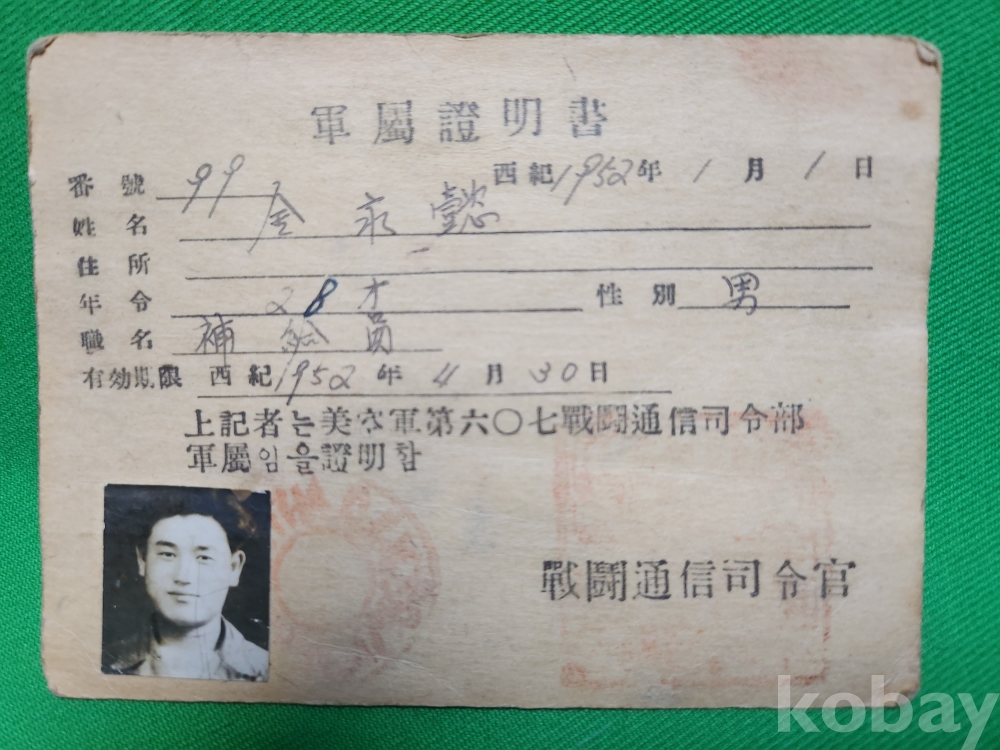 軍屬證明書
西紀1952年1月1日
番號 99
姓名 金永懿
住所
年令 28才 性別 男
職名 補給員
有効期限 西紀1952年4月30日
上記者는美空軍第六〇七戰鬪通信司令部
軍屬임을證明함
戰鬪通信司令官
kobay